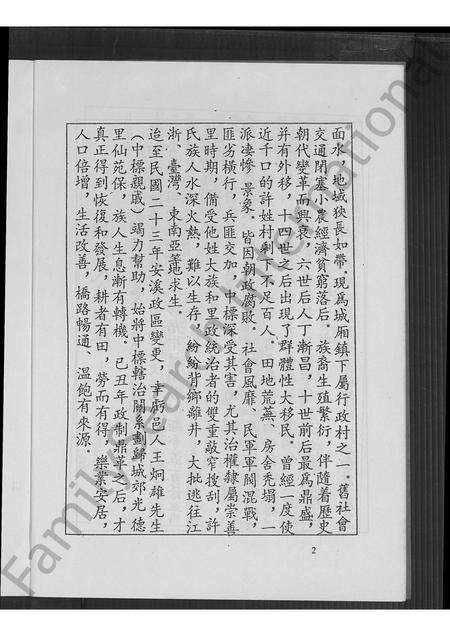 面水，地域狹長如帶，現爲城厢鎮下屬行政村之一。舊社會
交通閉塞小農經濟貧窮落后。族裔生殖繁衍，伴隨着歷史
朝代變革而興衰，六世后人丁漸昌，十世前后最爲鼎盛，
并有外移，十四世之后出現了群體性大移民。曾經一度使
近千口的許姓村剩下不足百人。田地荒蕪、房舍禿塌，一
派凄慘景象。皆因朝政腐敗。社會風靡、民軍軍閥混戰，
匪劣橫行，兵匪交加，中標深受其害，尤其治權隸屬崇善
里時期，備受他姓大族和里政統治者的雙重敲窄搜刮，許
氏族人水深火熱，難以生存，紛紛背鄉離井，大批逃往江
浙、臺灣、東南亞等地求生。
迨至民國二十三年安溪政區變更，幸虧邑人王炯雄先生
（中標親戚）竭力幫助，始將中標轄治關系劃歸城郊光德
里仙苑保，族人生息漸有轉機。己丑年政制鼎革之后，才
真正得到恢復和發展，耕者有田，勞而有得，樂業安居，
人口倍增，生活改善，橋路暢通、溫飽有來源。
2
FamilySearch International